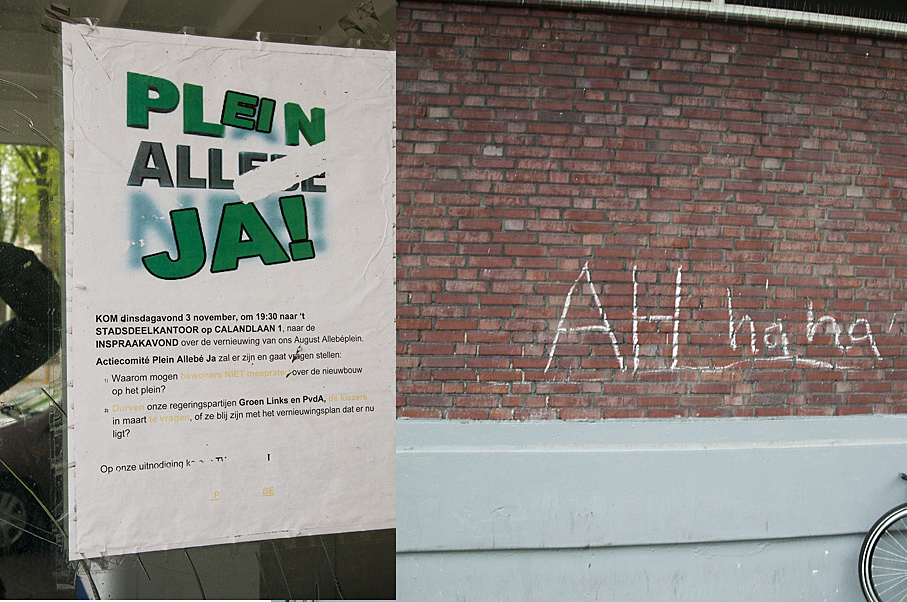 PLEIN
JA!
KOM dinsdagavond 3 november, om 19:30 naar 't
STADSDEELKANTOOR op CALANDLAAN 1, naar de
INSPRAAKAVOND over de vernieuwing van ons August Allebéplein.
Actiecomité Plein Allebé Ja zal er zijn en gaat vragen stellen:
1) Waarom mogen bewoners NIET meepraten over de nieuwbouw
op het plein?
2) Durven onze regeringspartijen Groen Links en PvdA, de kiezers
in maart te vragen, of ze blij zijn met het vernieuwingsplan dat er nu
ligt?
Op onze uitnodiging
AH ha ha